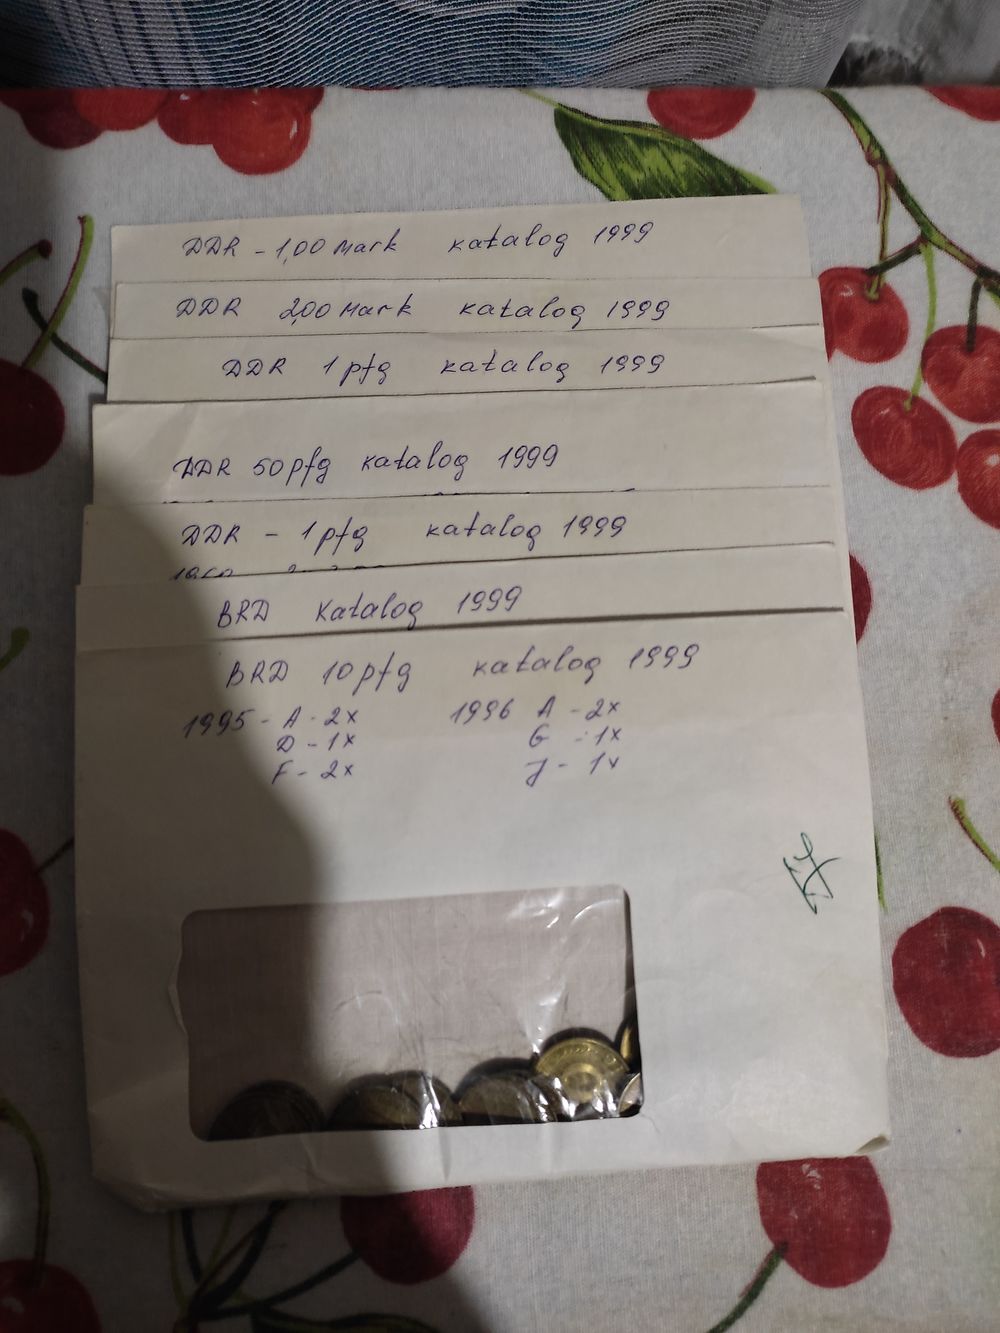 DDR - 1,00 Mark katalog 1999
DDR 2,00 Mark katalog 1999
DDR 1 pfg katalog 1999
DDR 50 pfg katalog 1999
DDR - 1 pfg katalog 1999
BRD katalog 1999
BRD 10 pfg katalog 1999
1995 - A - 2x 1996 A - 2x
D - 1x G - 1x
F - 2x J - 1x